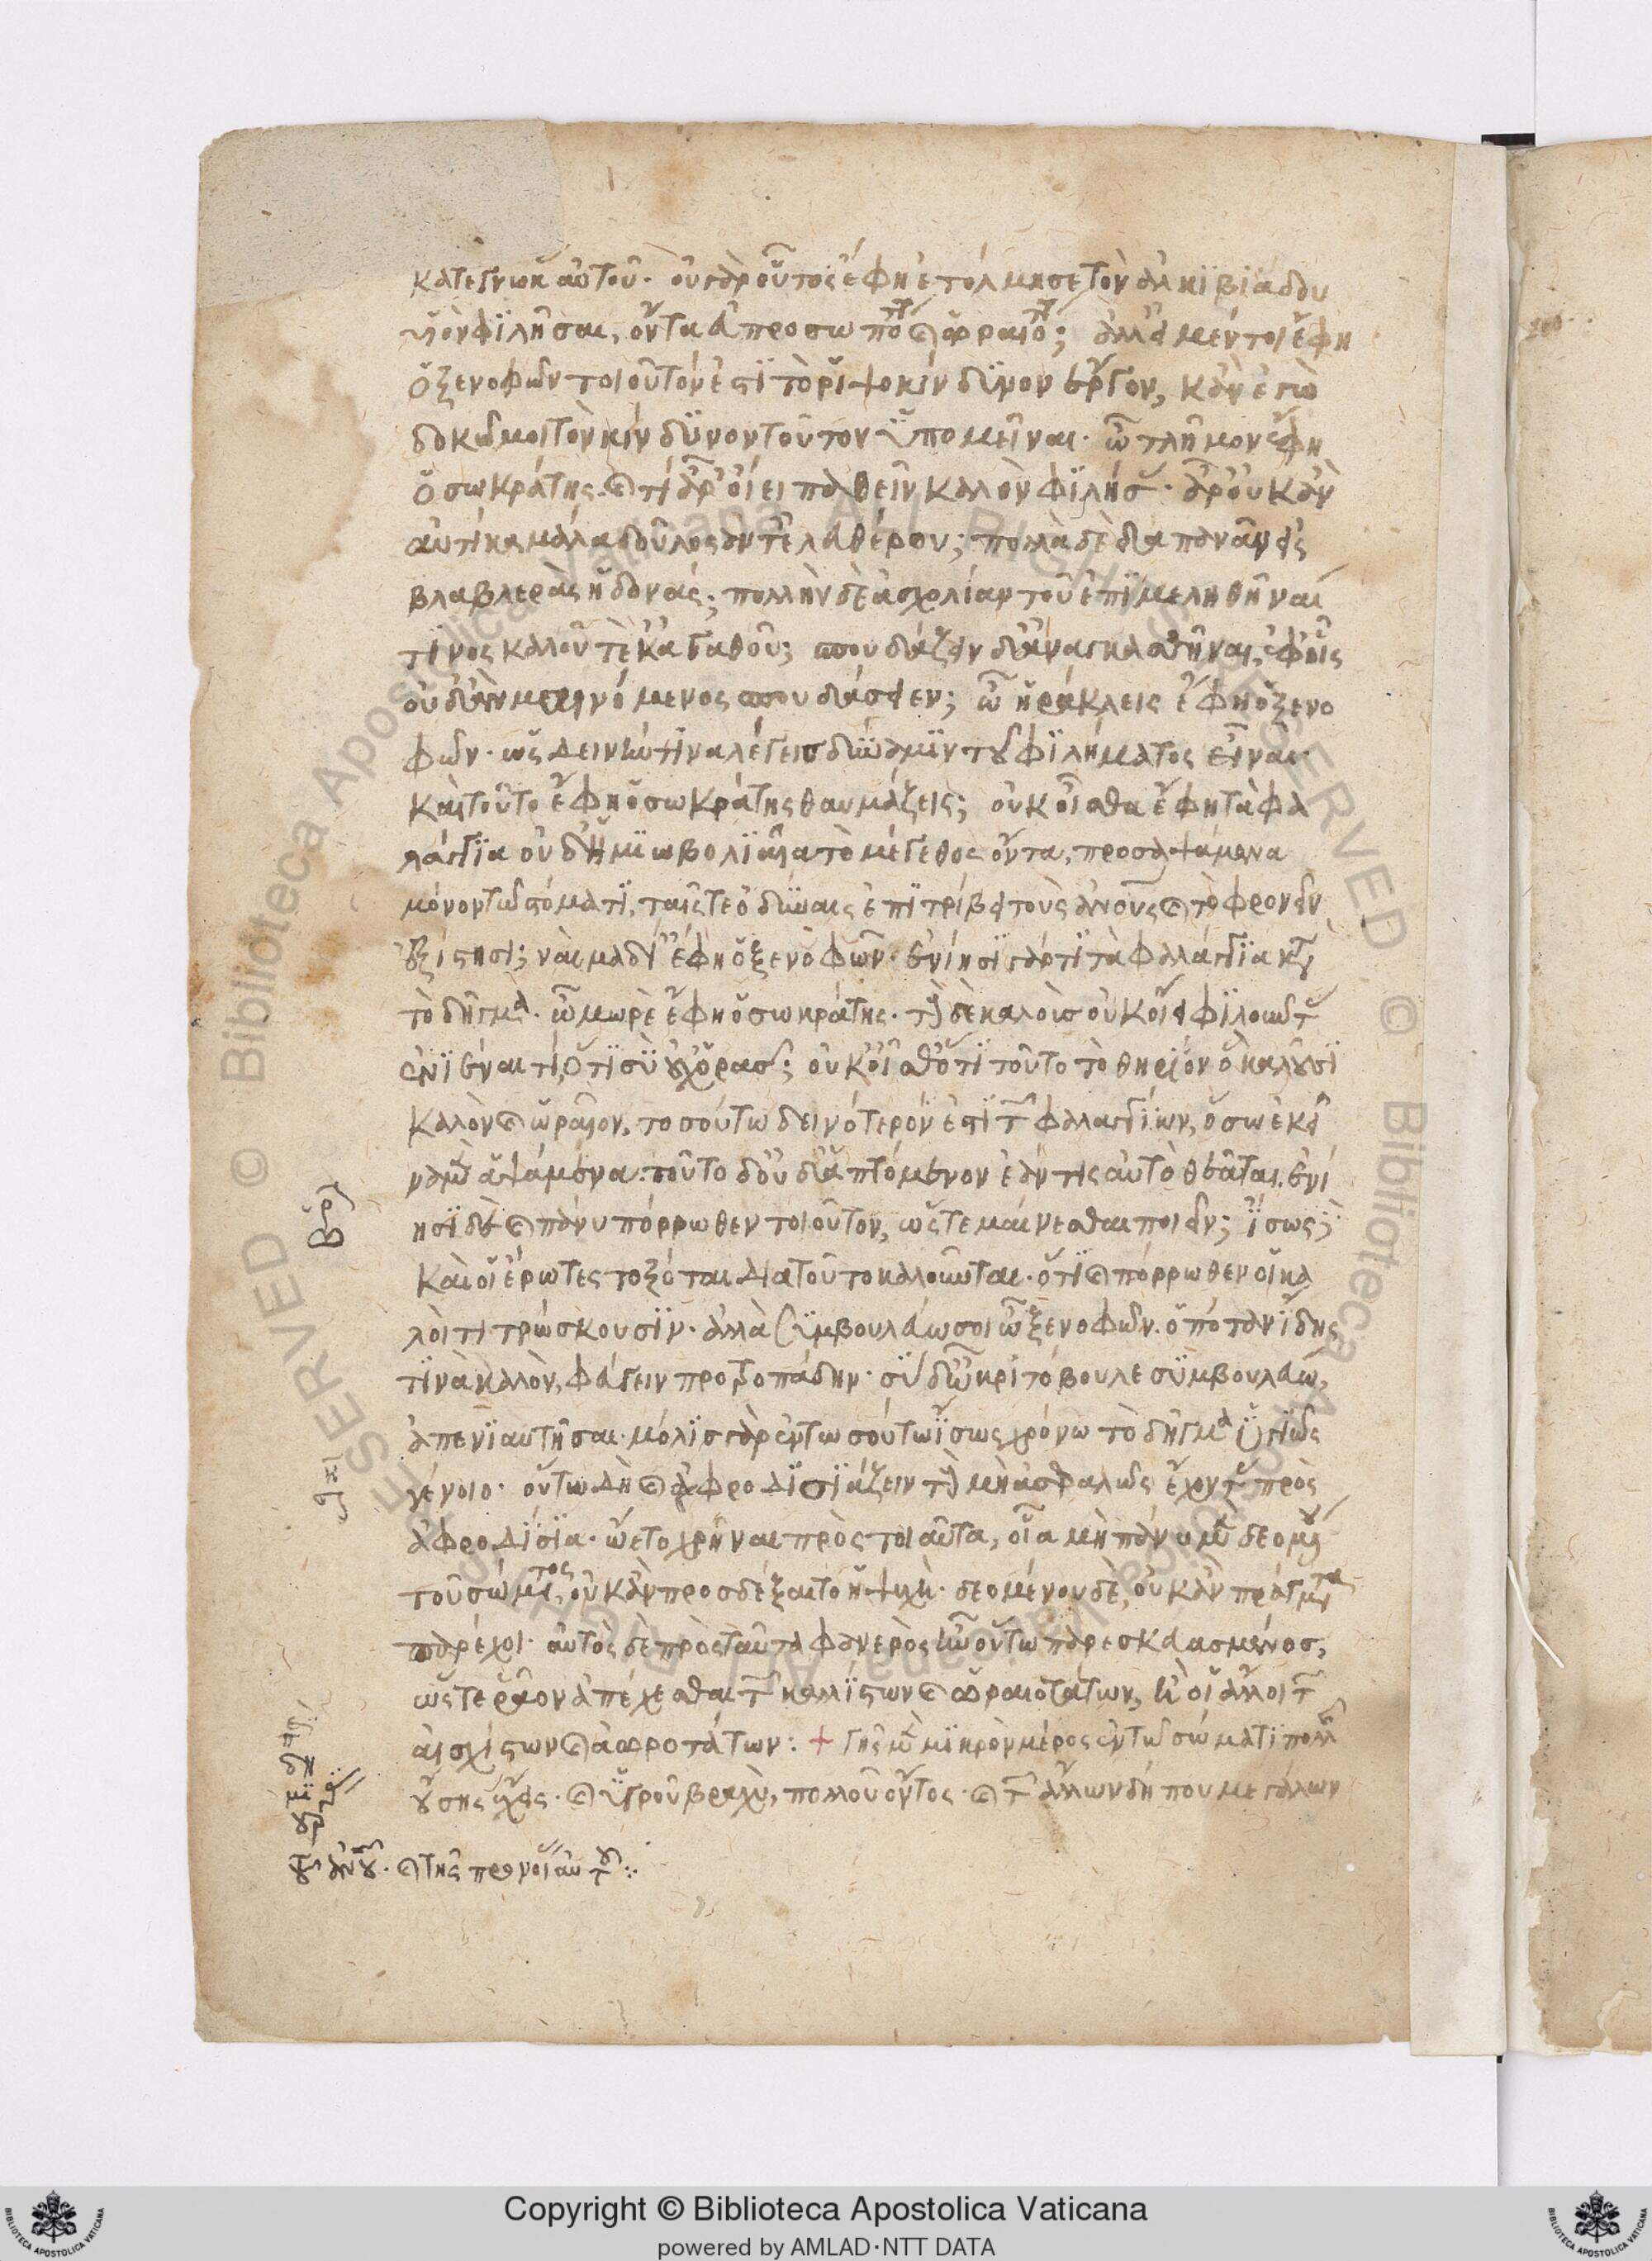 κατέγνωκας αὐτοῦ· οὐ γὰρ οὗτος ἔφη ἐτόλμησε τὸν ἀλκιβιάδου
υἱὸν φιλῆσαι, ὄντα εὐπροσωπότατον καὶ ὡραιότατον; ἀλλ' εἰ μέντοι ἔφη
ὁ ξενοφῶν τοιοῦτόν ἐστι τὸ ῥιψοκίνδυνον ἔργον, κἂν ἐγὼ
δοκῶ μοι τὸν κίνδυνον τοῦτον ὑπομεῖναι· ὦ τλῆμον ἔφη
ὁ σωκράτης· καὶ τί ἂν οἴει παθεῖν καλὸν φιλήσας· ἆρ' οὐκ ἂν
αὐτίκα μάλα δοῦλος ἀντ' ἐλευθέρου; πολλὰ δὲ δαπανᾶν εἰς
βλαβερὰς ἡδονάς; πολλὴν δὲ ἀσχολίαν τοῦ ἐπιμεληθῆναί
τινος καλοῦ τε κἀγαθοῦ; σπουδάζειν δ' ἀναγκασθῆναι, ἐφ' οἷς
οὐδ' ἂν μαινόμενος σπουδάσειεν; ὦ ἡράκλεις ἔφη ὁ ξενο
φῶν· ὡς δεινήν τινα λέγεις δύναμιν τοῦ φιλήματος εἶναι·
καὶ τοῦτο ἔφη ὁ σωκράτης θαυμάζεις; οὐκ οἶσθα ἔφη τὰ φα
λάγγια οὐδ' ἡμιωβολιαῖα τὸ μέγεθος ὄντα, προσαψάμενα
μόνον τῷ στόματι, ταῖς τε ὀδύναις ἐπιτρίβει τοὺς ἀνθρώπους καὶ τὸ φρονεῖν
ἐξίστησι; ναὶ μὰ δί' ἔφη ὁ ξενοφῶν· ἐνίησι γάρ τι τὰ φαλάγγια κατὰ
τὸ δῆγμα· ὦ μωρὲ ἔφη ὁ σωκράτης· τοὺς δὲ καλοὺς οὐκ οἴει φιλοῦντας
ἐνιέναι τι, ὅτι σὺ οὐχ ὁρᾷς; οὐκ οἶσθ' ὅτι τοῦτο τὸ θηρίον ὃ καλοῦσι
καλὸν καὶ ὡραῖον, τοσούτω δεινότερόν ἐστι τῶν φαλαγγίων, ὅσω ἐκεῖ
να μὲν ἁψάμενα· τοῦτο δ' οὐδ' ἁπτόμενον ἐάν τις αὐτὸ θεᾶται, ἐνί
ησι δέ καὶ πάνυ πόρρωθεν τοιοῦτον, ὥστε μαίνεσθαι ποιεῖν; ἴσως δὲ
καὶ οἱ ἔρωτες τοξόται διὰ τοῦτο καλοῦνται· ὅτι καὶ πόρρωθεν οἱ κα
λοὶ τιτρώσκουσιν· ἀλλὰ συμβουλεύω σοι ὦ ξενοφῶν· ὁπόταν ἴδης
τινὰ καλὸν, φεύγειν προτροπάδην· σοὶ δ' ὦ κριτόβουλε συμβουλεύω,
ἀπενιαυτῆσαι· μόλις γὰρ ἐν τοσούτω ἴσως χρόνω τὸ δῆγμα ὑγιὴς
γένοιο· οὕτω δὴ καὶ ἀφροδισιάζειν τοὺς μὴ ἀσφαλῶς ἔχοντας πρὸς
ἀφροδίσια· ᾤετο χρῆναι πρὸς τοιαῦτα, οἷα μὴ πάνυ μὲν δεομένου
τοῦ σώματος, οὐκ ἂν προσδέξαιτο ἡ ψυχή· δεομένου δὲ, οὐκ ἂν πράγματα
παρέχοι· αὐτὸς δὲ πρὸς ταῦτα φανερὸς ἦν οὕτω παρεσκευασμένος,
ὥστε ῥᾷον ἀπέχεσθαι τῶν καλλίστων καὶ ὡραιοτάτων, ἢ οἱ ἄλλοι τῶν
αἰσχίστων καὶ ἀωροτάτων: + γῆς μὲν μικρὸν μέρος ἐν τῷ σώματι πολλῆς
οὔσης ἔχεις· καὶ ὑγροῦ βραχὺ, πολλοῦ ὄντος· καὶ τῶν ἄλλων δήπου μεγάλων
τοῦ ἀνθρώπου· καὶ τῆς προνοίας αὐτοῦ:·